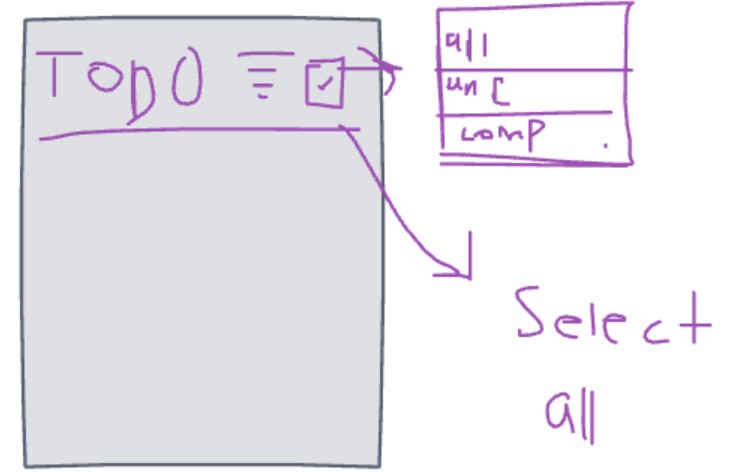 TODO
all
unc
comp
Select
all